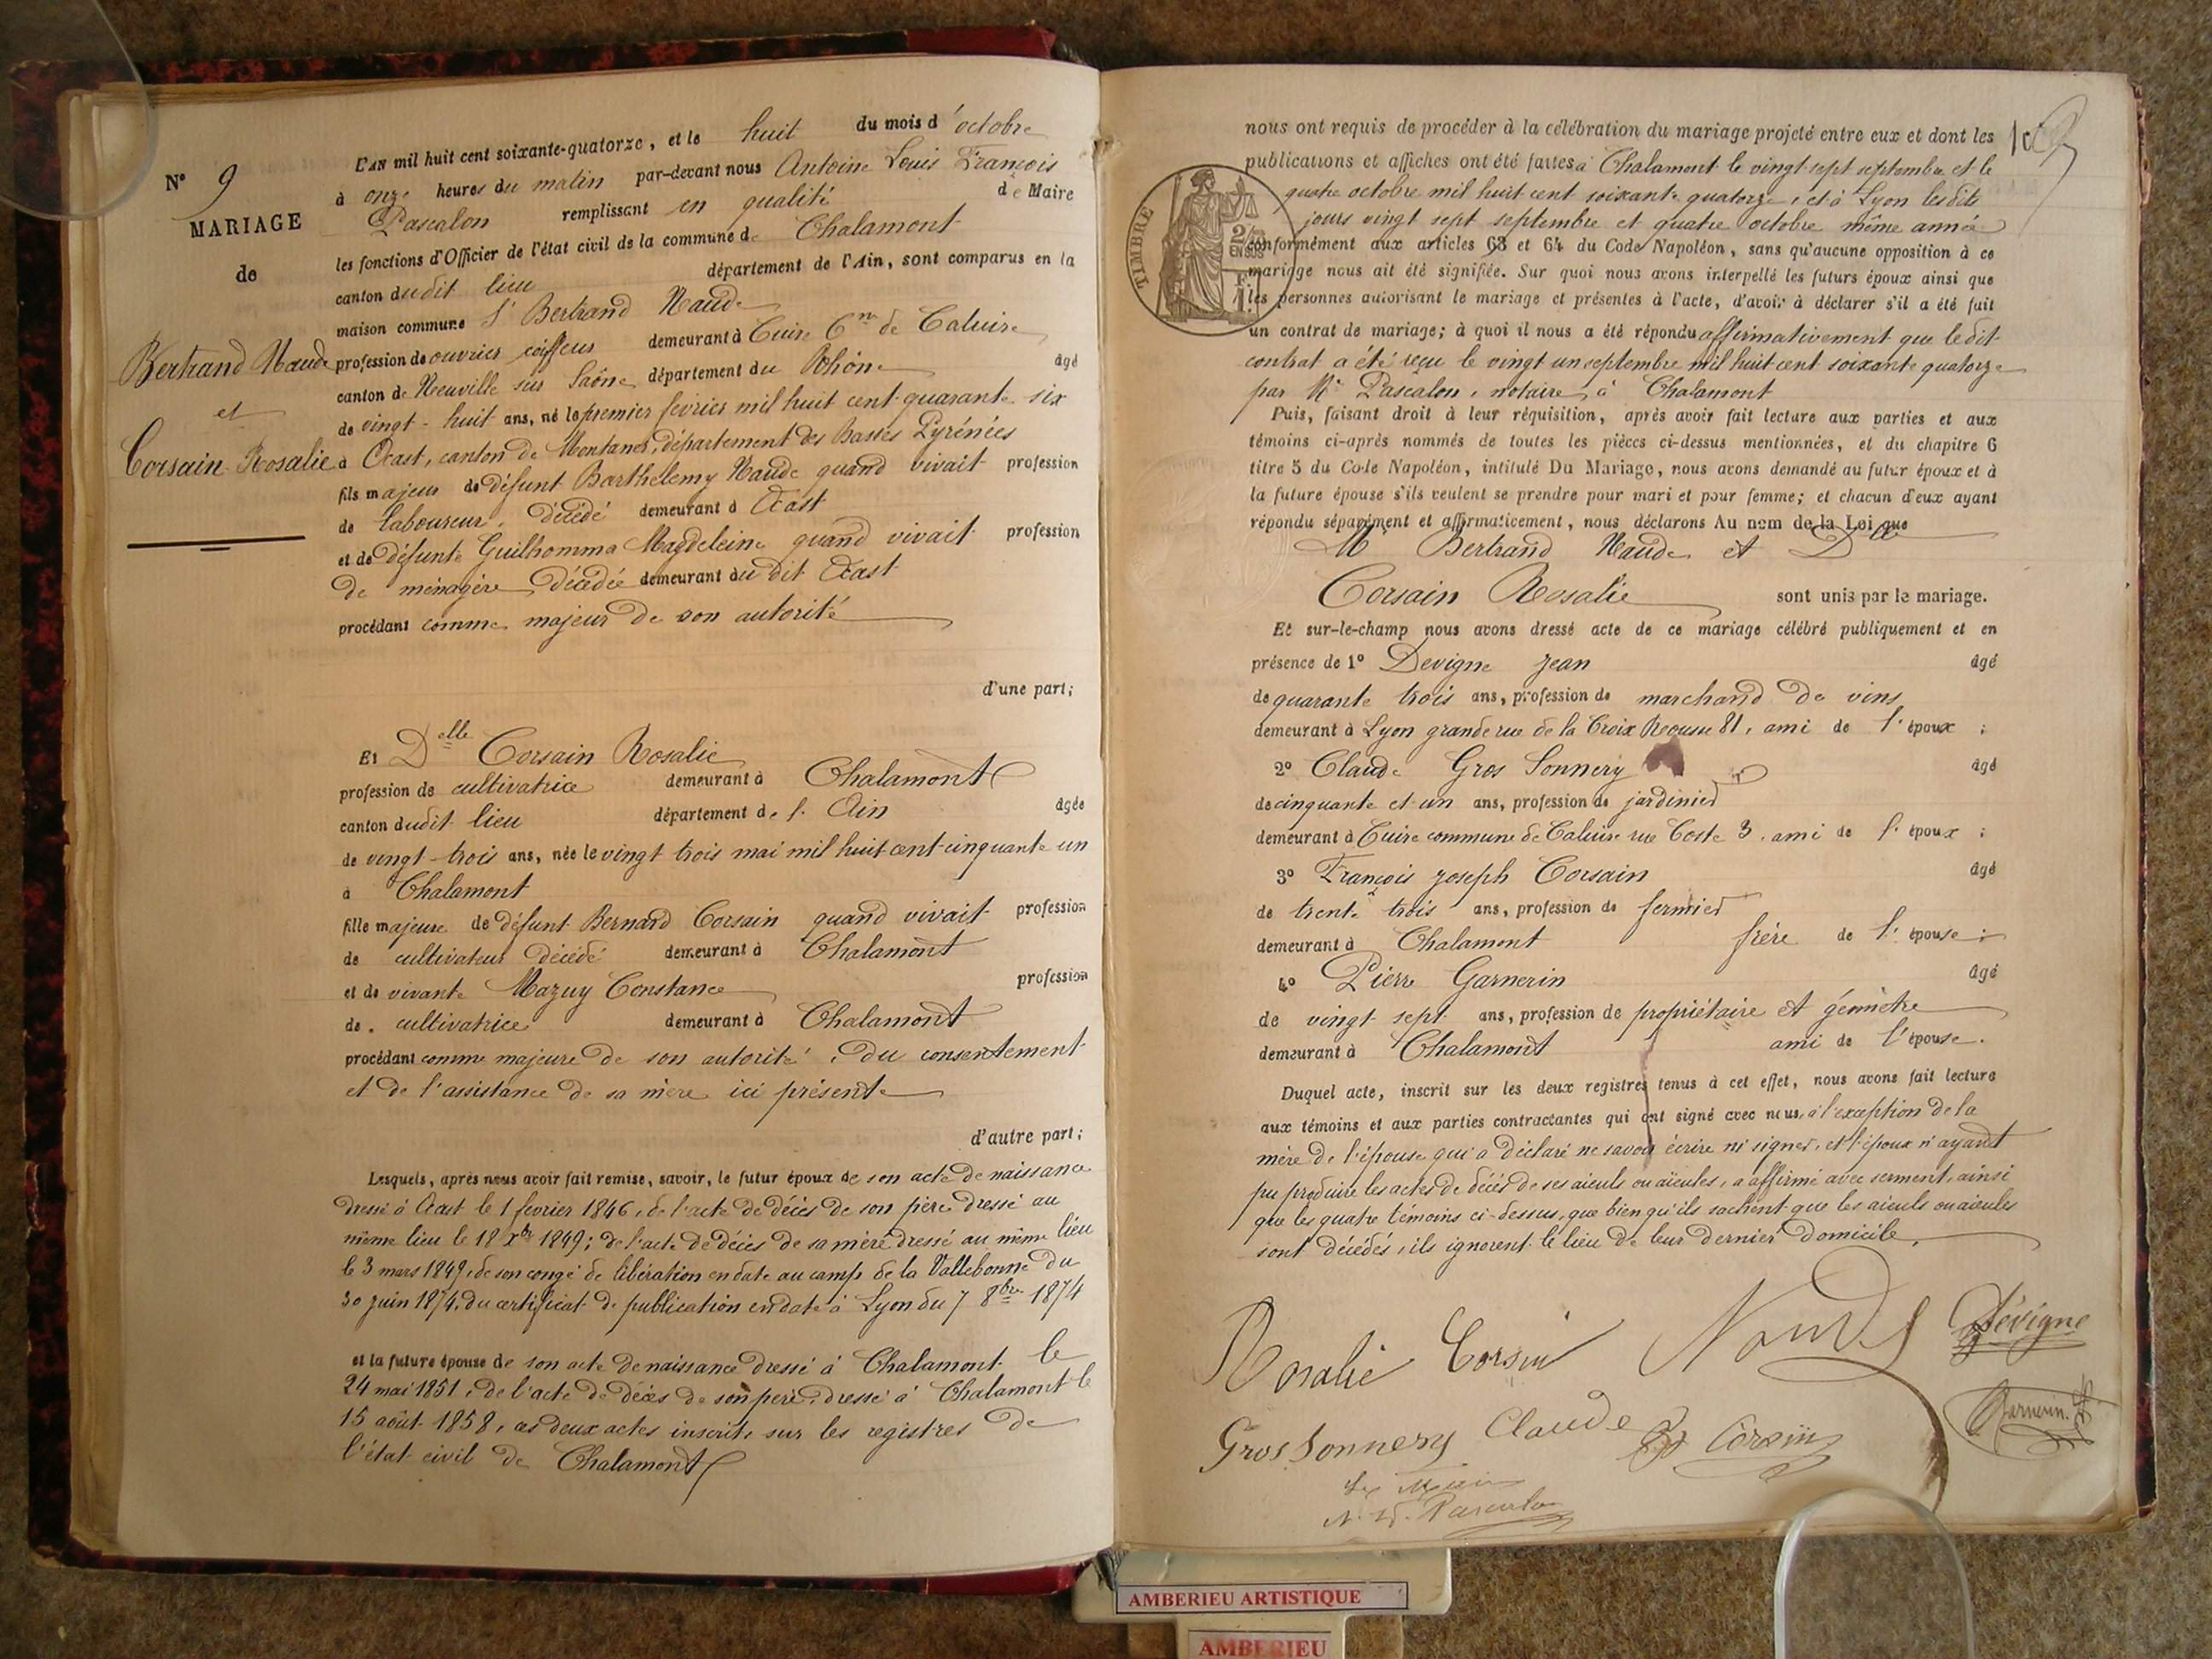 N° 9
MARIAGE
de
Bertrand Naude
et
Corsain Rosalie
L'AN mil huit cent soixante-quatorze, et le huit du mois d'octobre
à onze heures du matin par-devant nous Antoine Louis François
Pascalon remplissant en qualité de Maire
les fonctions d'Officier de l'état civil de la commune de Chalamont
canton dudit lieu département de l'Ain, sont comparus en la
maison commune Sr Bertrand Naude
profession de ouvrier coiffeur demeurant à Cuire Cne de Caluire
canton de Neuville sur Saône département du Rhône âgé
de vingt-huit ans, né le premier février mil huit cent quarante six
à Aast, canton de Montaner, département des Basses Pyrénées
fils majeur de défunt Barthélemy Naude quand vivait profession
de laboureur, décédé demeurant à Aast
et de défunte Guilhomma Magdeleine quand vivait profession
de ménagère décédée demeurant au dit Aast
procédant comme majeur de son autorité
d'une part;
Et Delle Corsain Rosalie
profession de cultivatrice demeurant à Chalamont
canton dudit lieu département de l'Ain âgée
de vingt-trois ans, née le vingt trois mai mil huit cent cinquante un
à Chalamont
fille majeure de défunt Bernard Corsain quand vivait profession
de cultivateur décédé demeurant à Chalamont
et de vivante Mazuy Constance profession
de cultivatrice demeurant à Chalamont
procédant comme majeure de son autorité, du consentement
et de l'assistance de sa mère ici présente
d'autre part;
Lesquels, après nous avoir fait remise, savoir, le futur époux de son acte de naissance
dressé à Aast le 1 février 1846, de l'acte de décès de son père dressé au
même lieu le 18 Xbre 1849; de l'acte de décès de sa mère dressé au même lieu
le 3 mars 1849, de son congé de libération en date au camp de la Vallebonne du
30 juin 1874, du certificat de publication en date à Lyon du 7 8bre 1874
et la future épouse de son acte de naissance dressé à Chalamont le
24 mai 1851, de l'acte de décès de son père, dressé à Chalamont le
15 août 1858, ces deux actes inscrits sur les registres de
l'état civil de Chalamont
nous ont requis de procéder à la célébration du mariage projeté entre eux et dont les
publications et affiches ont été faites à Chalamont le vingt sept septembre et le
quatre octobre mil huit cent soixante quatorze, et à Lyon lesdits
jours vingt sept septembre et quatre octobre même année
TIMBRE
2/10 EN SUS
conformément aux articles 63 et 64 du Code Napoléon, sans qu'aucune opposition à ce
mariage nous ait été signifiée. Sur quoi nous avons interpellé les futurs époux ainsi que
les personnes autorisant le mariage et présentes à l'acte, d'avoir à déclarer s'il a été fait
un contrat de mariage; à quoi il nous a été répondu affirmativement que le dit
contrat a été reçu le vingt un septembre mil huit cent soixante quatorze
par Me Pascalon, notaire à Chalamont
Puis, faisant droit à leur réquisition, après avoir fait lecture aux parties et aux
témoins ci-après nommés de toutes les pièces ci-dessus mentionnées, et du chapitre 6
titre 5 du Code Napoléon, intitulé Du Mariage, nous avons demandé au futur époux et à
la future épouse s'ils veulent se prendre pour mari et pour femme; et chacun d'eux ayant
répondu séparément et affirmativement, nous déclarons Au nom de la Loi que
Mr Bertrand Naude et Dlle
Corsain Rosalie sont unis par le mariage.
Et sur-le-champ nous avons dressé acte de ce mariage célébré publiquement et en
présence de 1° Devigne Jean âgé
de quarante trois ans, profession de marchand de vins
demeurant à Lyon grande rue de la Croix Rousse 81, ami de l'époux;
2° Claude Gros Sonnery âgé
de cinquante et un ans, profession de jardinier
demeurant à Cuire commune de Caluire rue Coste 3, ami de l'époux;
3° François Joseph Corsain âgé
de trente trois ans, profession de fermier
demeurant à Chalamont frère de l'épouse;
4° Pierre Garnerin âgé
de vingt sept ans, profession de propriétaire et géomètre
demeurant à Chalamont ami de l'épouse.
Duquel acte, inscrit sur les deux registres tenus à cet effet, nous avons fait lecture
aux témoins et aux parties contractantes qui ont signé avec nous, à l'exception de la
mère de l'épouse qui a déclaré ne savoir écrire ni signer, et l'époux n'ayant
pu produire les actes de décès de ses aïeuls ou aïeules, a affirmé avec serment, ainsi
que les quatre témoins ci-dessus, que bien qu'ils sachent que les aïeuls ou aïeules
sont décédés, ils ignorent le lieu de leur dernier domicile.
Rosalie Corsin Naude Dévigne
Gros Sonnery Claude Corsin Garnerin
Le Maire
Pascalon
AMBERIEU ARTISTIQUE
AMBERIEU